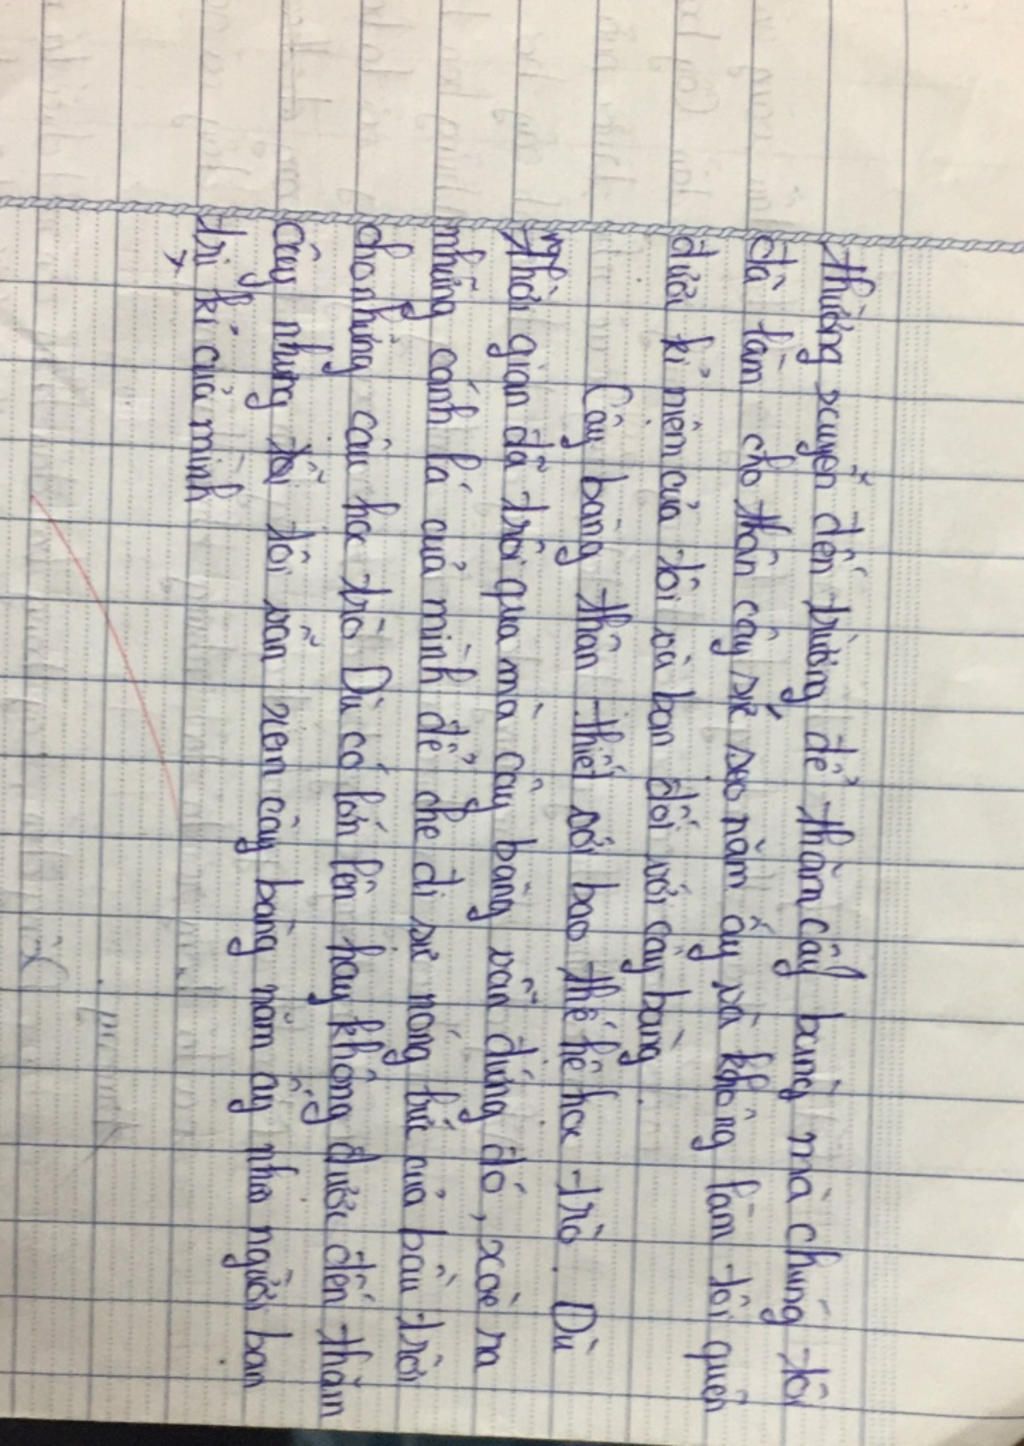 thường xuyên đến trường để thăm cây bàng mà chúng tôi
đã làm cho thân cây sứt sẹo năm ấy và không làm tôi quên
dưới kỉ niệm của tôi và bạn đối với cây bàng.
Cây bàng thân thiết với bao thế hệ học trò. Dù
thời gian đã trôi qua mà cây bàng vẫn đứng đó, xoè ra
những cánh lá của mình để che đi sự nóng bức của bầu trời
cho những cậu học trò Dù có lớn lên hay không được đến thăm
cây nhưng tôi vẫn xem cây bàng năm ấy như người bạn
tri kỉ của mình